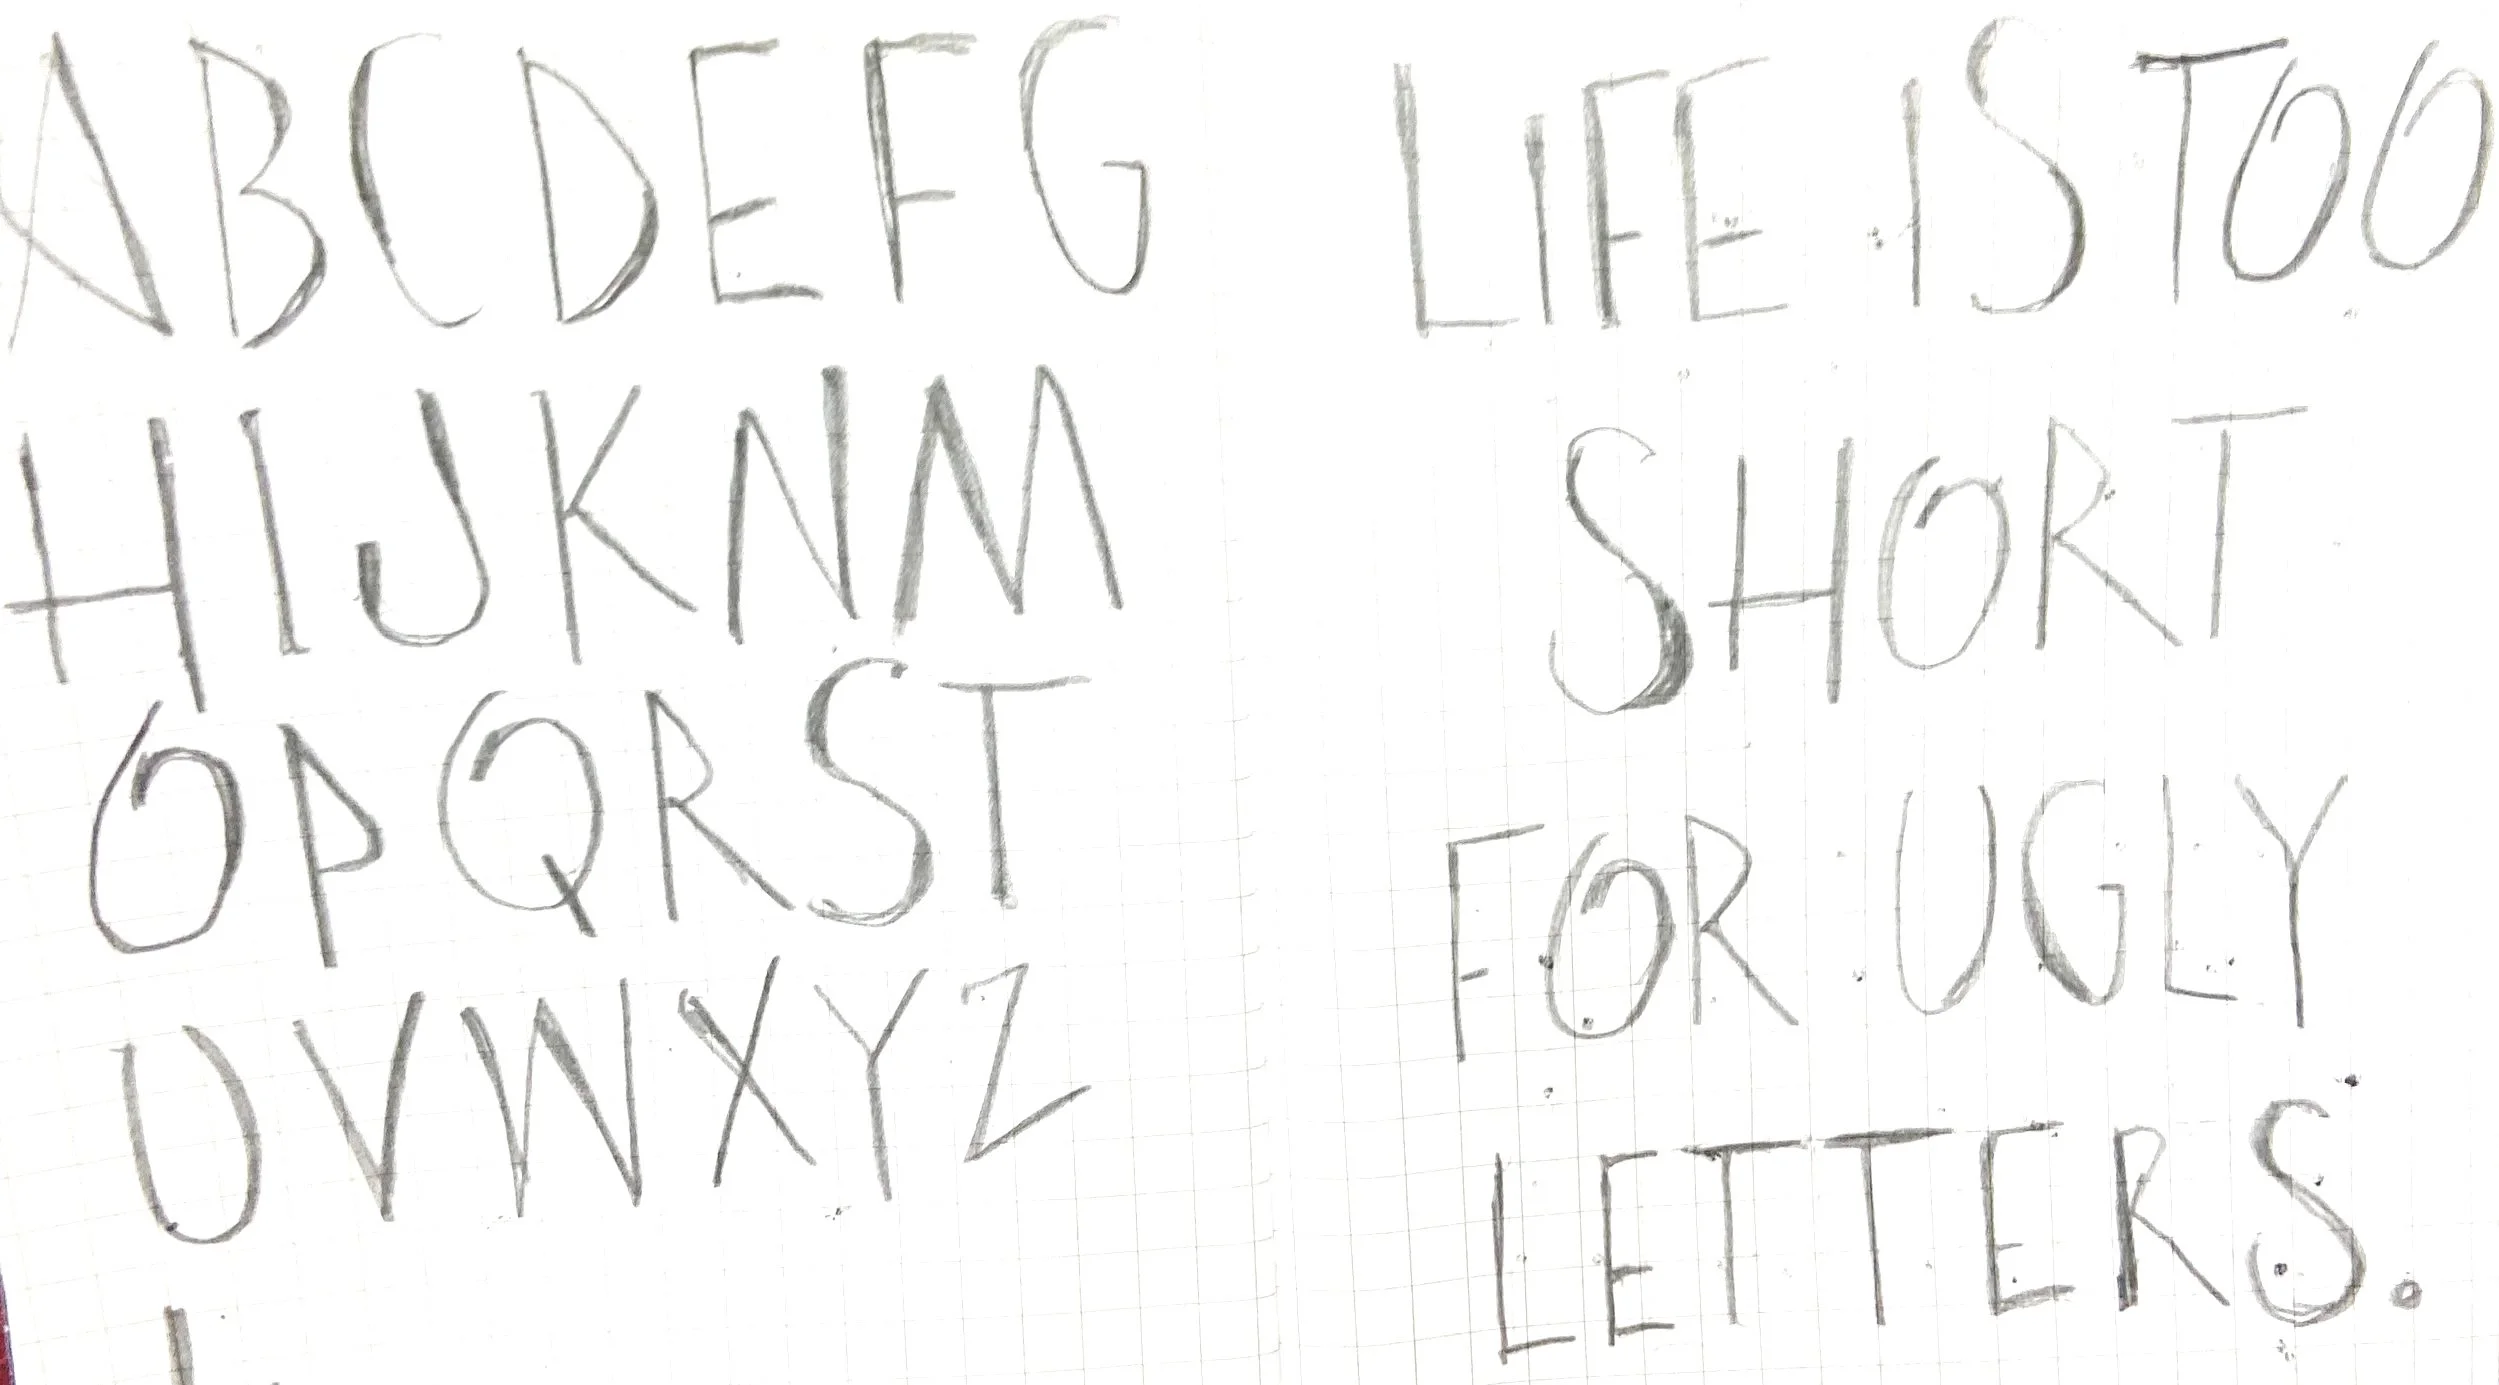 ABCDEFG
HIJKNM
OPQRST
UVWXYZ
LIFE IS TOO
SHORT
FOR UGLY
LETTERS.